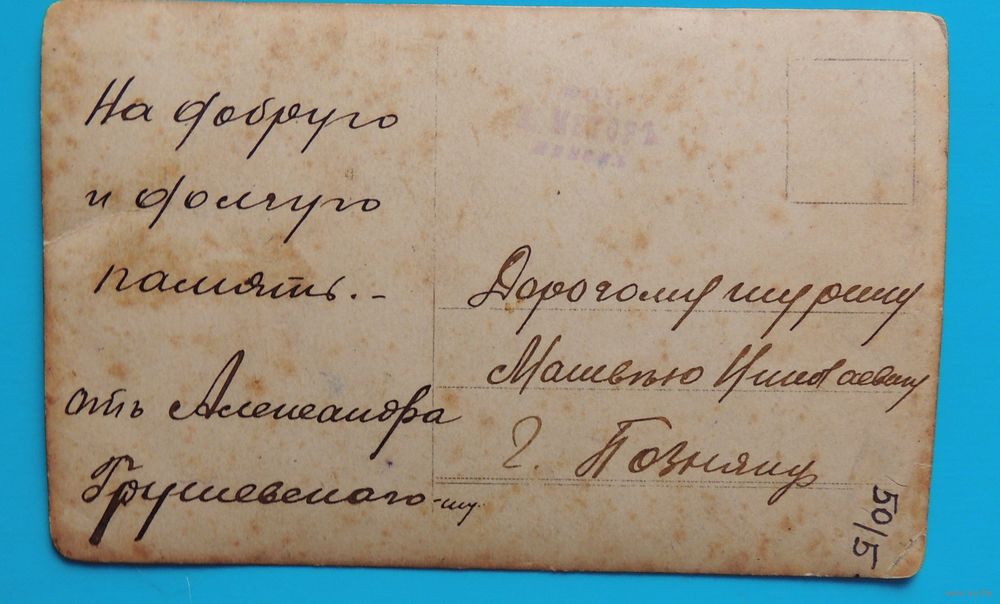 На добрую
и долгую
память.-
отъ Александра
Грушевскаго
ФОТ.
Дорогому шурину
Матвѣю Николаевичу
г. Позняку
50/5